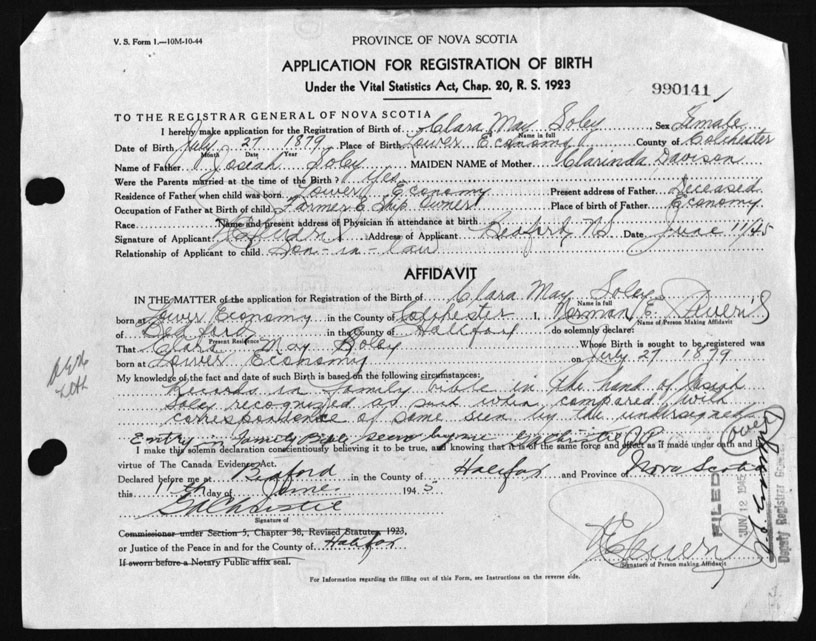 V. S. Form 1.—10M-10-44
PROVINCE OF NOVA SCOTIA
APPLICATION FOR REGISTRATION OF BIRTH
Under the Vital Statistics Act, Chap. 20, R. S. 1923
990141
TO THE REGISTRAR GENERAL OF NOVA SCOTIA
I hereby make application for the Registration of Birth of Clara May Soley Sex Female
Name in full
Date of Birth July 27 1879 Place of Birth Lower Economy County of Colchester
Month Date Year
Name of Father Josiah Soley MAIDEN NAME of Mother Clarinda Davison
Were the Parents married at the time of the Birth? Yes
Residence of Father when child was born Lower Economy Present address of Father Deceased
Occupation of Father at Birth of child Farmer & Ship Owner Place of birth of Father Economy
Race Name and present address of Physician in attendance at birth
Signature of Applicant Address of Applicant Bedford, NS Date June 11/45
Relationship of Applicant to child Son-in-law
AFFIDAVIT
IN THE MATTER of the application for Registration of the Birth of Clara May Soley
Name in full
born at Lower Economy in the County of Colchester I, Norman E.
Name of Person Making Affidavit
of Bedford in the County of Halifax do solemnly declare:
Present Residence
That Clara May Soley Whose Birth is sought to be registered was
born at Lower Economy on July 27 1879
My knowledge of the fact and date of such Birth is based on the following circumstances:
Records in family bible in the hand of Josiah
Soley recognized as such when compared with
correspondence of same seen by the undersigned
Entry in Family Bible seen by me G A Christie J P
(over)
I make this solemn declaration conscientiously believing it to be true, and knowing that it is of the same force and effect as if made under oath and by
virtue of The Canada Evidence Act.
Declared before me at Bedford in the County of Halifax and Province of Nova Scotia
this 11th day of June 1945
G A Christie
Signature of
Commissioner under Section 5, Chapter 38, Revised Statutes, 1923,
or Justice of the Peace in and for the County of Halifax
If sworn before a Notary Public affix seal.
Signature of Person making Affidavit
FILED
JUN 12 1945
Deputy Registrar General
For Information regarding the filling out of this Form, see Instructions on the reverse side.